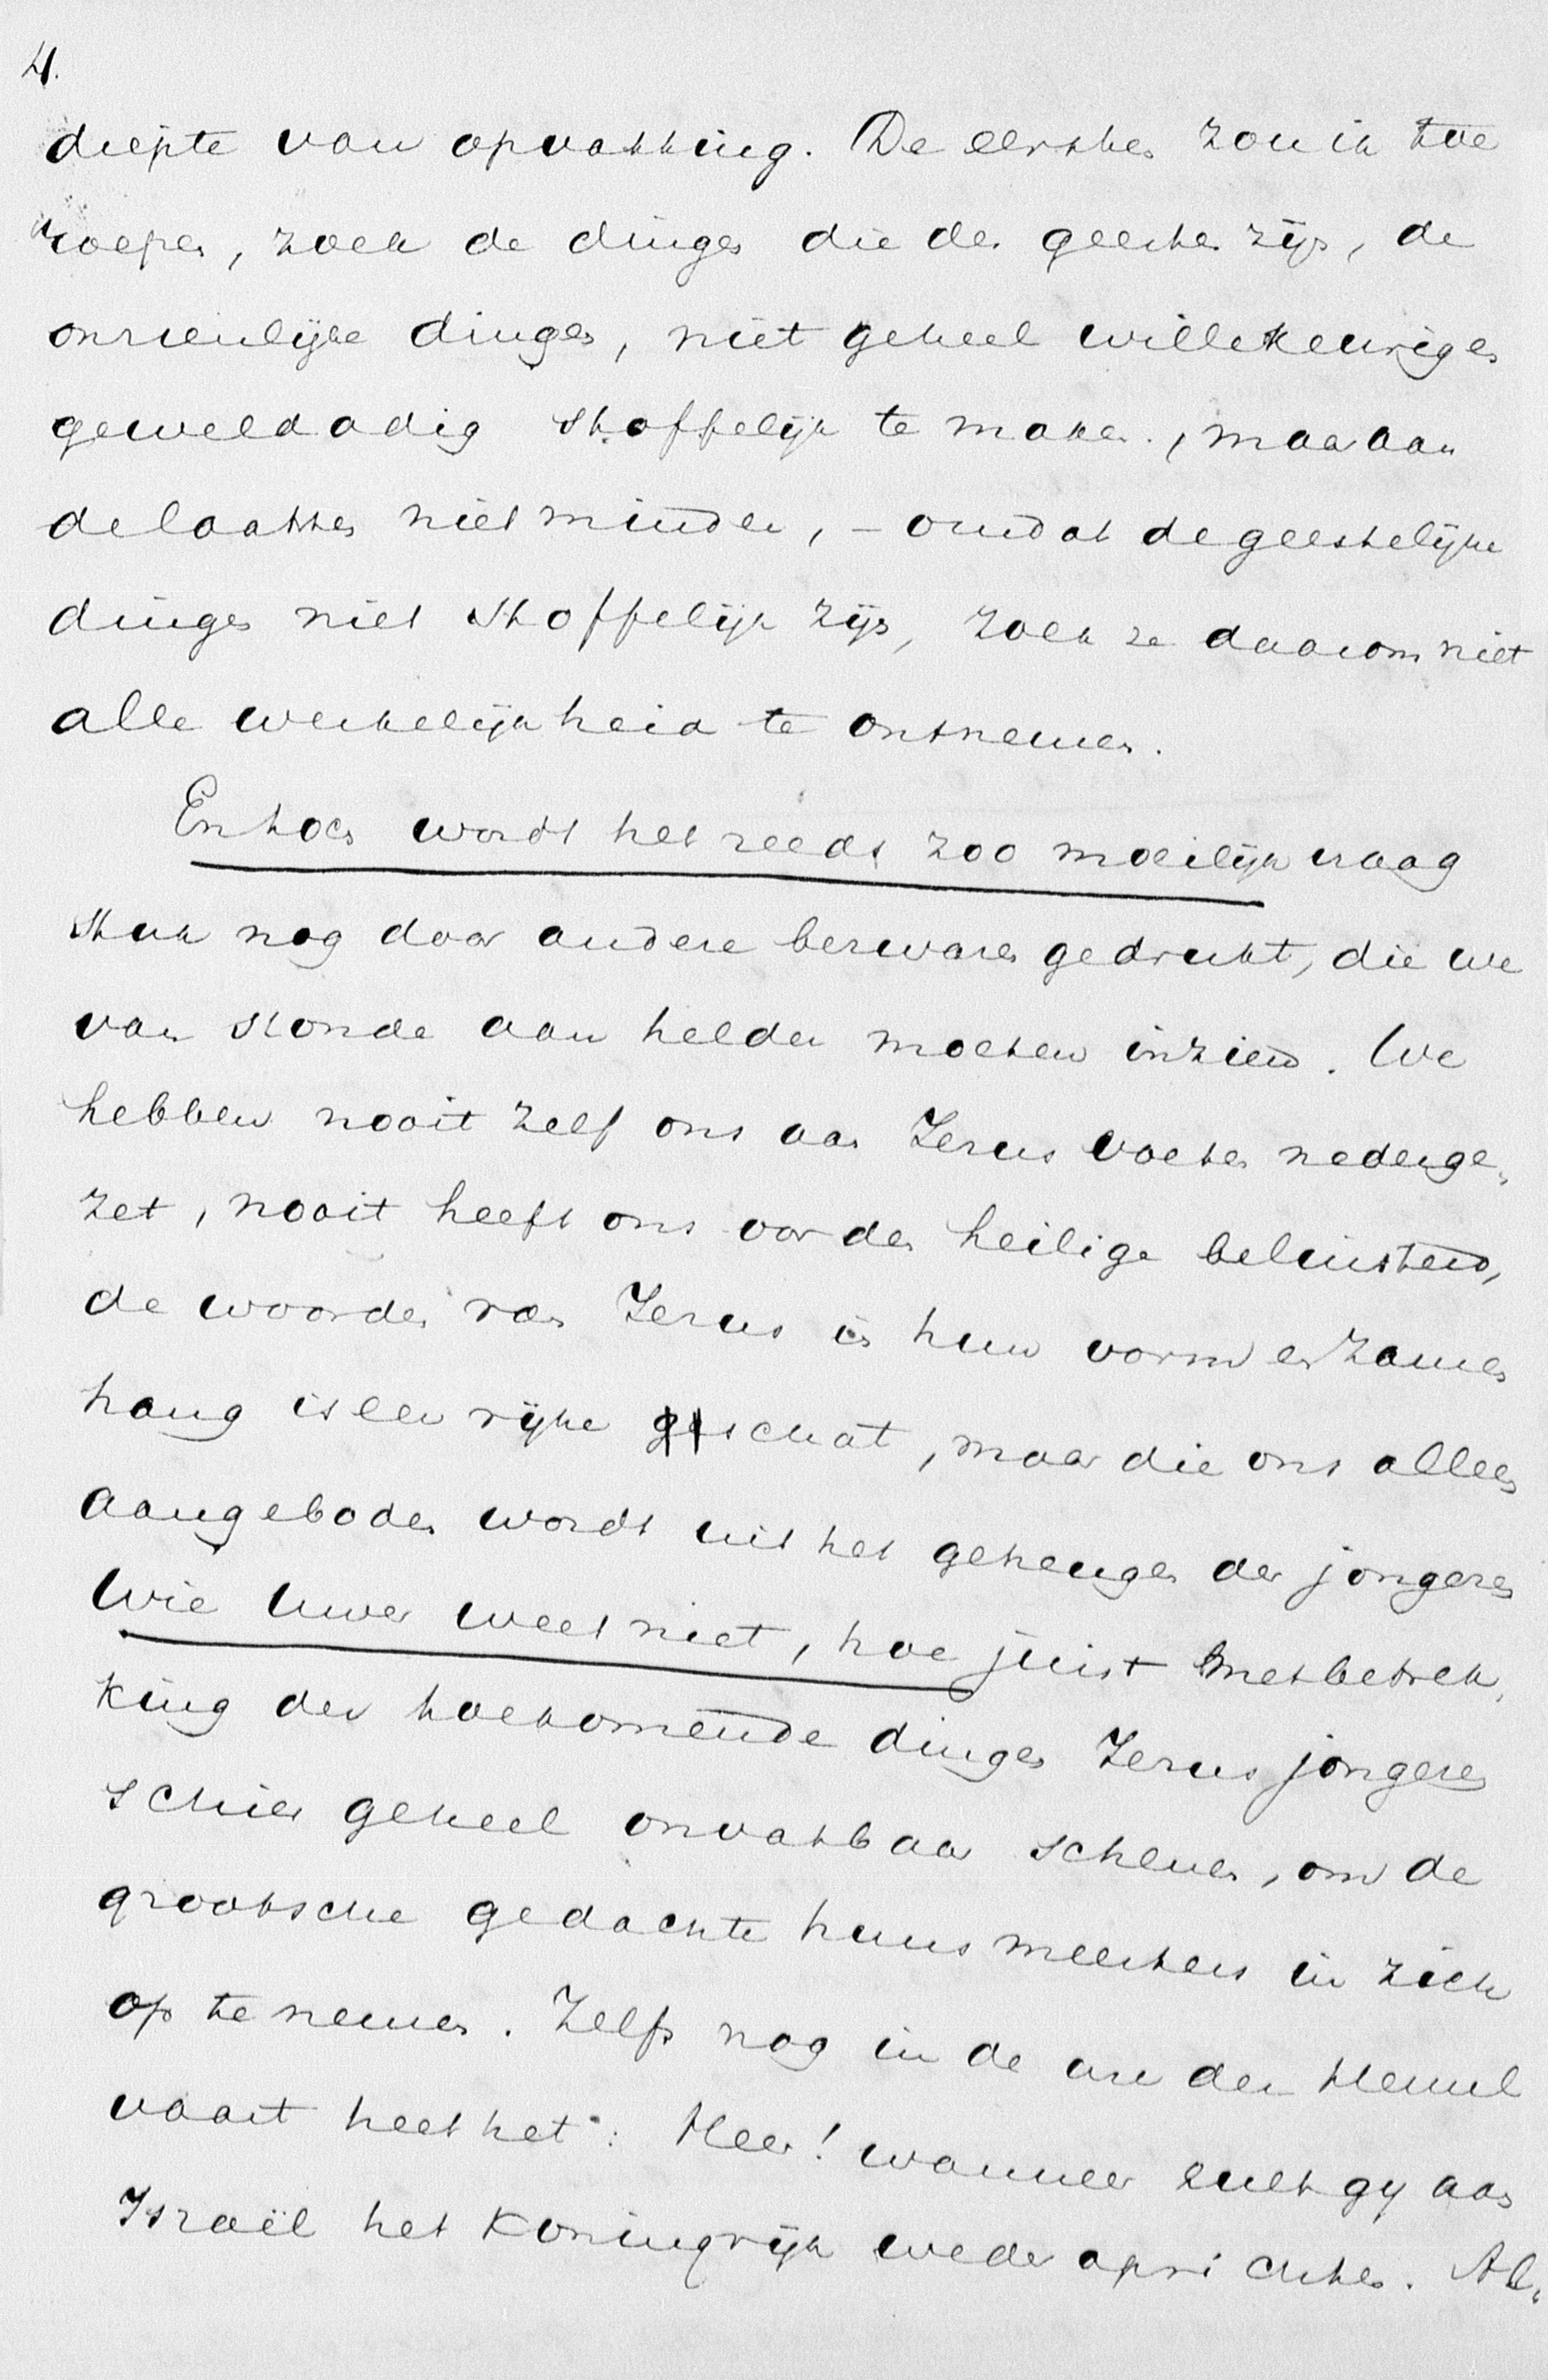 4.
diepte van opvatting. De eersten zou ik toe
roepen, zoek de dingen die des geestes zijn, de
onzienlijke dingen, niet geheel willekeurig en
gewelddadig stoffelijk te maken, maar aan
de laatsten niet minder, – omdat de geestelijke
dingen niet stoffelijk zijn, zoek ze daarom niet
alle werkelijkheid te ontnemen.
En toch wordt het reeds zoo moeilijk vraag
stuk nog door andere bezwaren gedrukt, die we
van stonde aan helder moeten inzien. We
hebben nooit zelf ons aan Jezus voeten nederge„
zet, nooit heeft ons oor den heilige beluisterd,
de woorden van Jezus in hun vorm en zamen
hang is een rijke schat, maar die ons alleen
aangeboden wordt uit het geheugen der jongeren
Wie Uwer weet niet, hoe juist met betrek„
king der toekomende dingen Jezus jongeren
schier geheel onvatbaar schenen, om de
grootsche gedachte huns meesters in zich
op te nemen. Zelfs nog in de ure der Hemel
vaart heet het: Heer! wanneer zult gij aan
Israël het Koningrijk weder oprichten. Al„